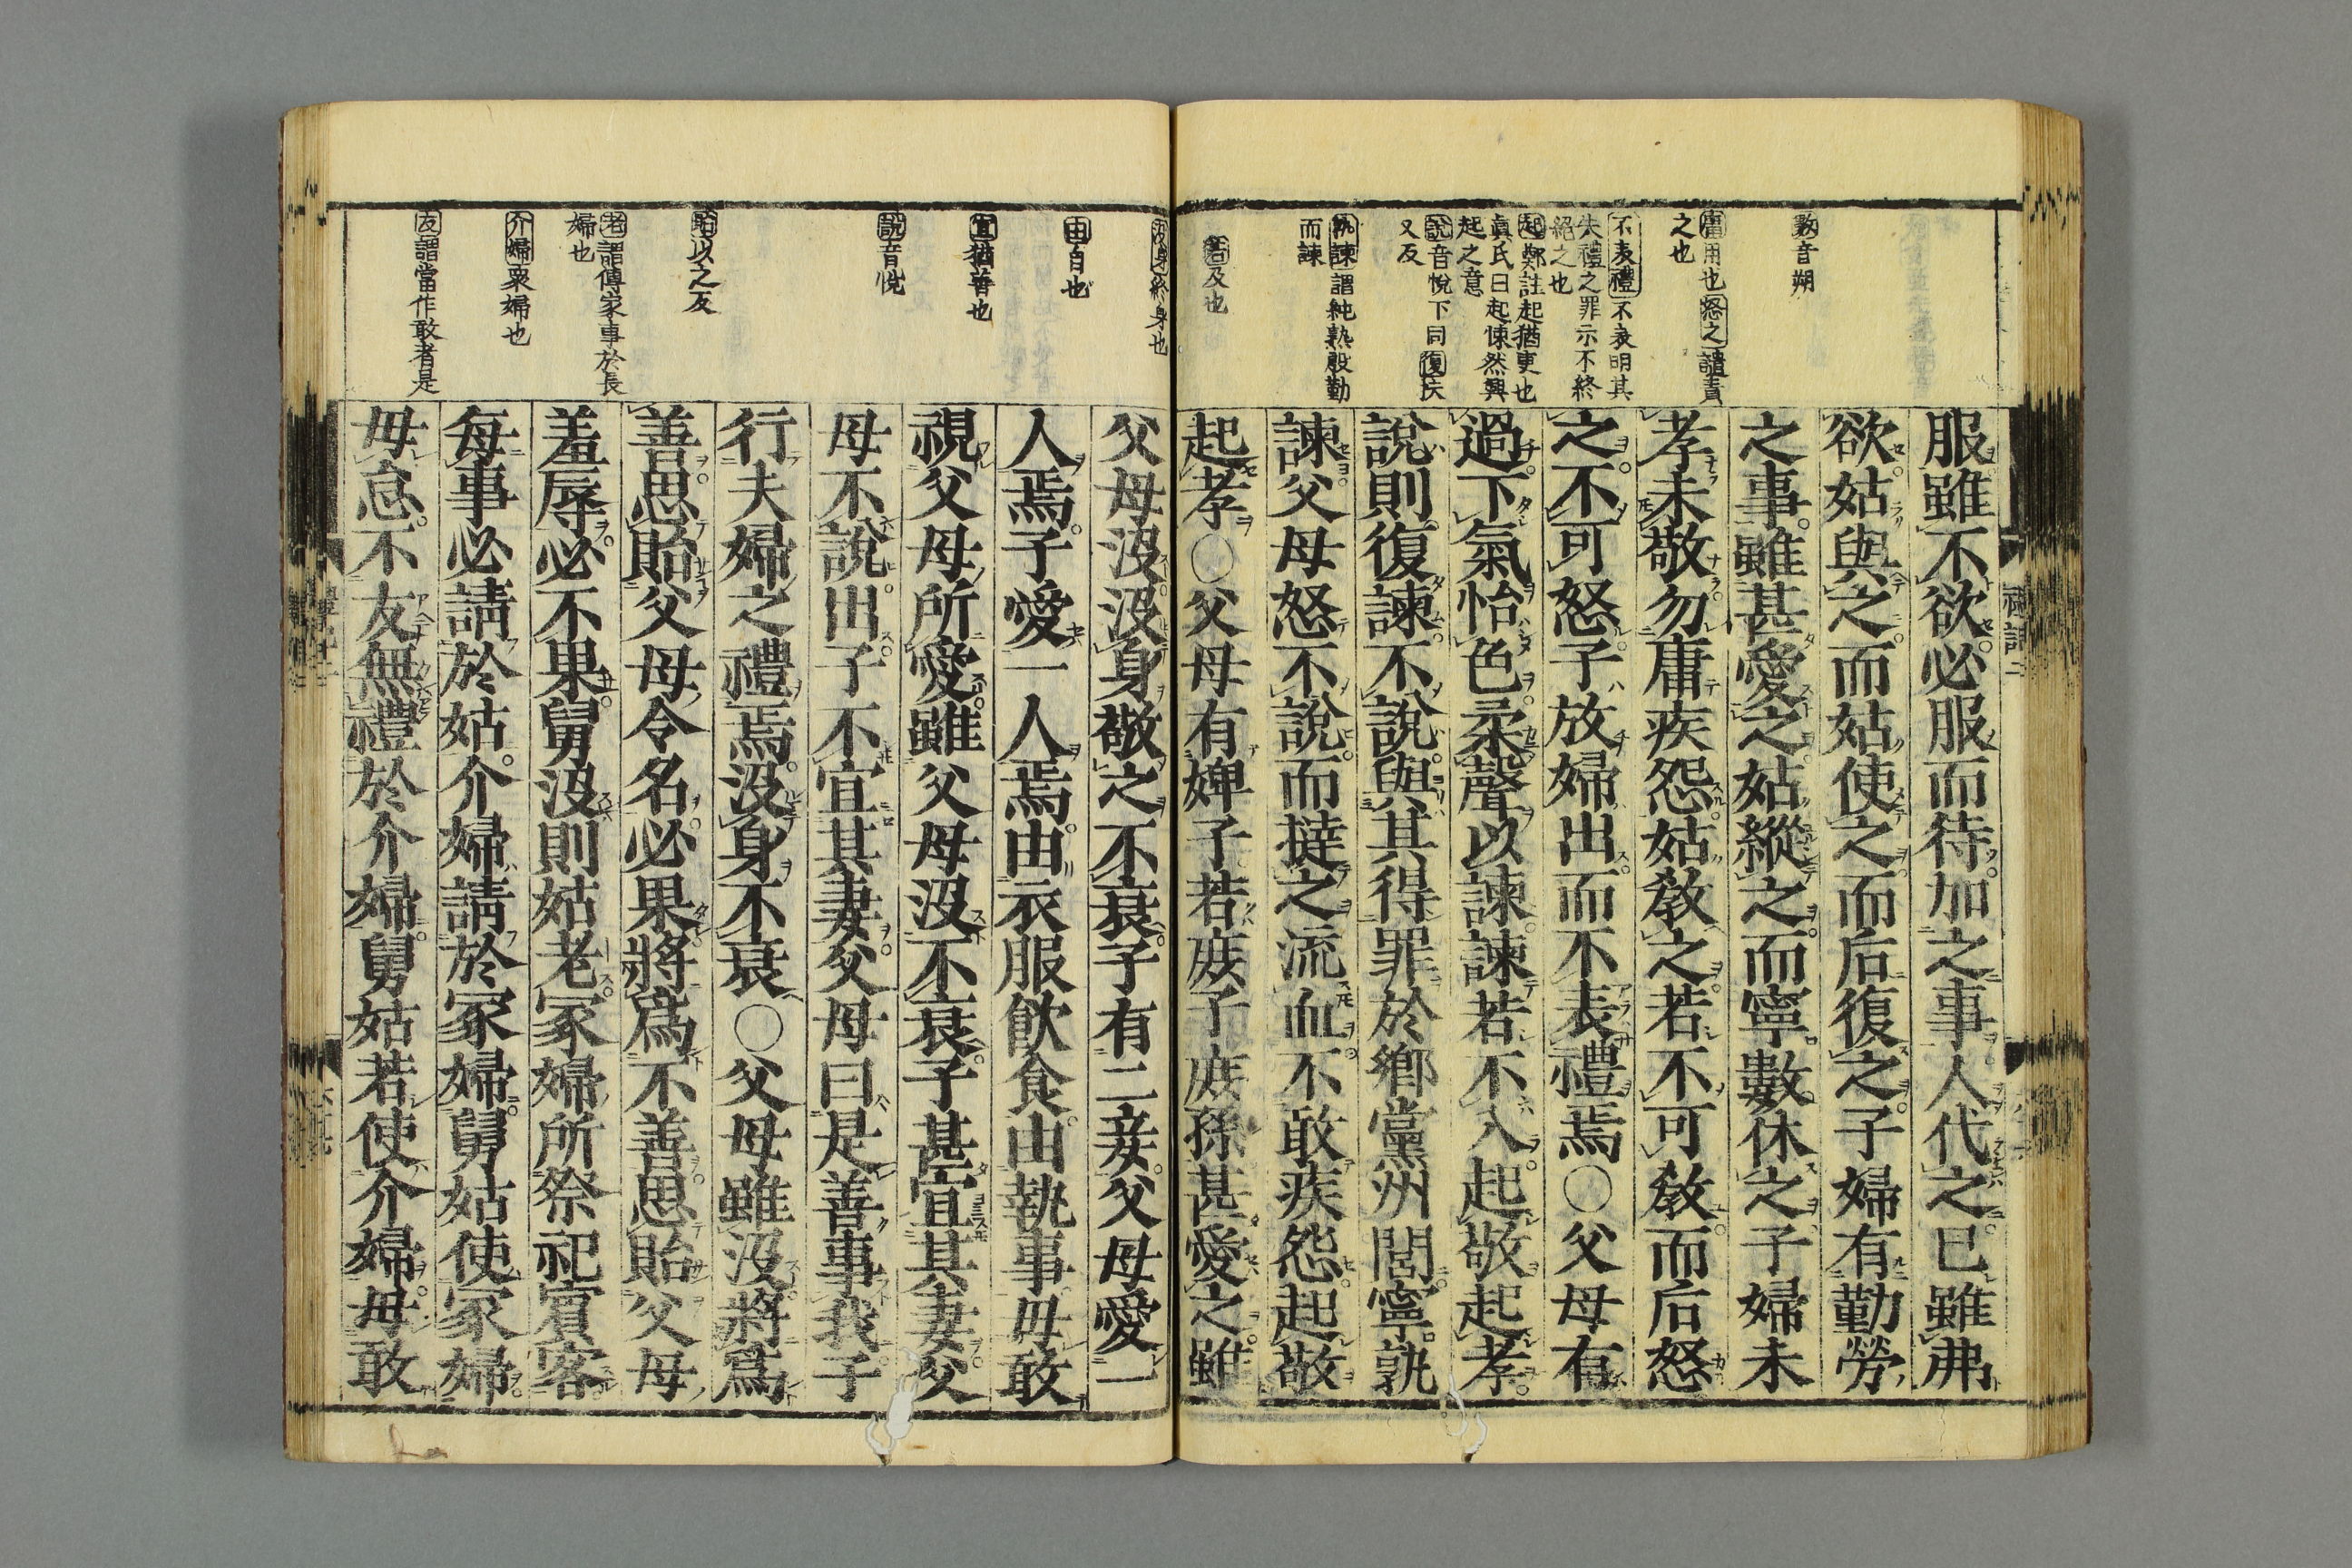 數音朔
庸用也怒之譴責
之也
不表禮不表明其
失禮之罪示不終
絕之也
起鄭註起猶更也
眞氏曰起悚然興
起之意
說音悅下同復扶
又反
孰諫謂純熟殷勤
而諫
若及也
服雖不欲必服而待加之事人代之已雖弗
欲姑與之而姑使之而后復之子婦有勤勞
之事雖甚愛之姑縱之而寧數休之子婦未
孝未敬勿庸疾怨姑教之若不可教而后怒
之不可怒子放婦出而不表禮焉○父母有
過下氣怡色柔聲以諫諫若不入起敬起孝
說則復諫不說與其得罪於鄉黨州閭寧孰
諫父母怒不說而撻之流血不敢疾怨起敬
起孝○父母有婢子若庶子庶孫甚愛之雖
沒身終身也
由自也
宜猶善也
說音悅
貽以之反
老謂傳家事於長
婦也
介婦衆婦也
友謂當作敢者是
父母沒沒身敬之不衰子有二妾父母愛一
人焉子愛一人焉由衣服飲食由執事毋敢
視父母所愛雖父母沒不衰子甚宜其妻父
母不說出子不宜其妻父母曰是善事我子
行夫婦之禮焉沒身不衰○父母雖沒將爲
善思貽父母令名必果將爲不善思貽父母
羞辱必不果舅沒則姑老冢婦所祭祀賓客
每事必請於姑介婦請於冢婦舅姑使冢婦
毋怠不友無禮於介婦舅姑若使介婦毋敢